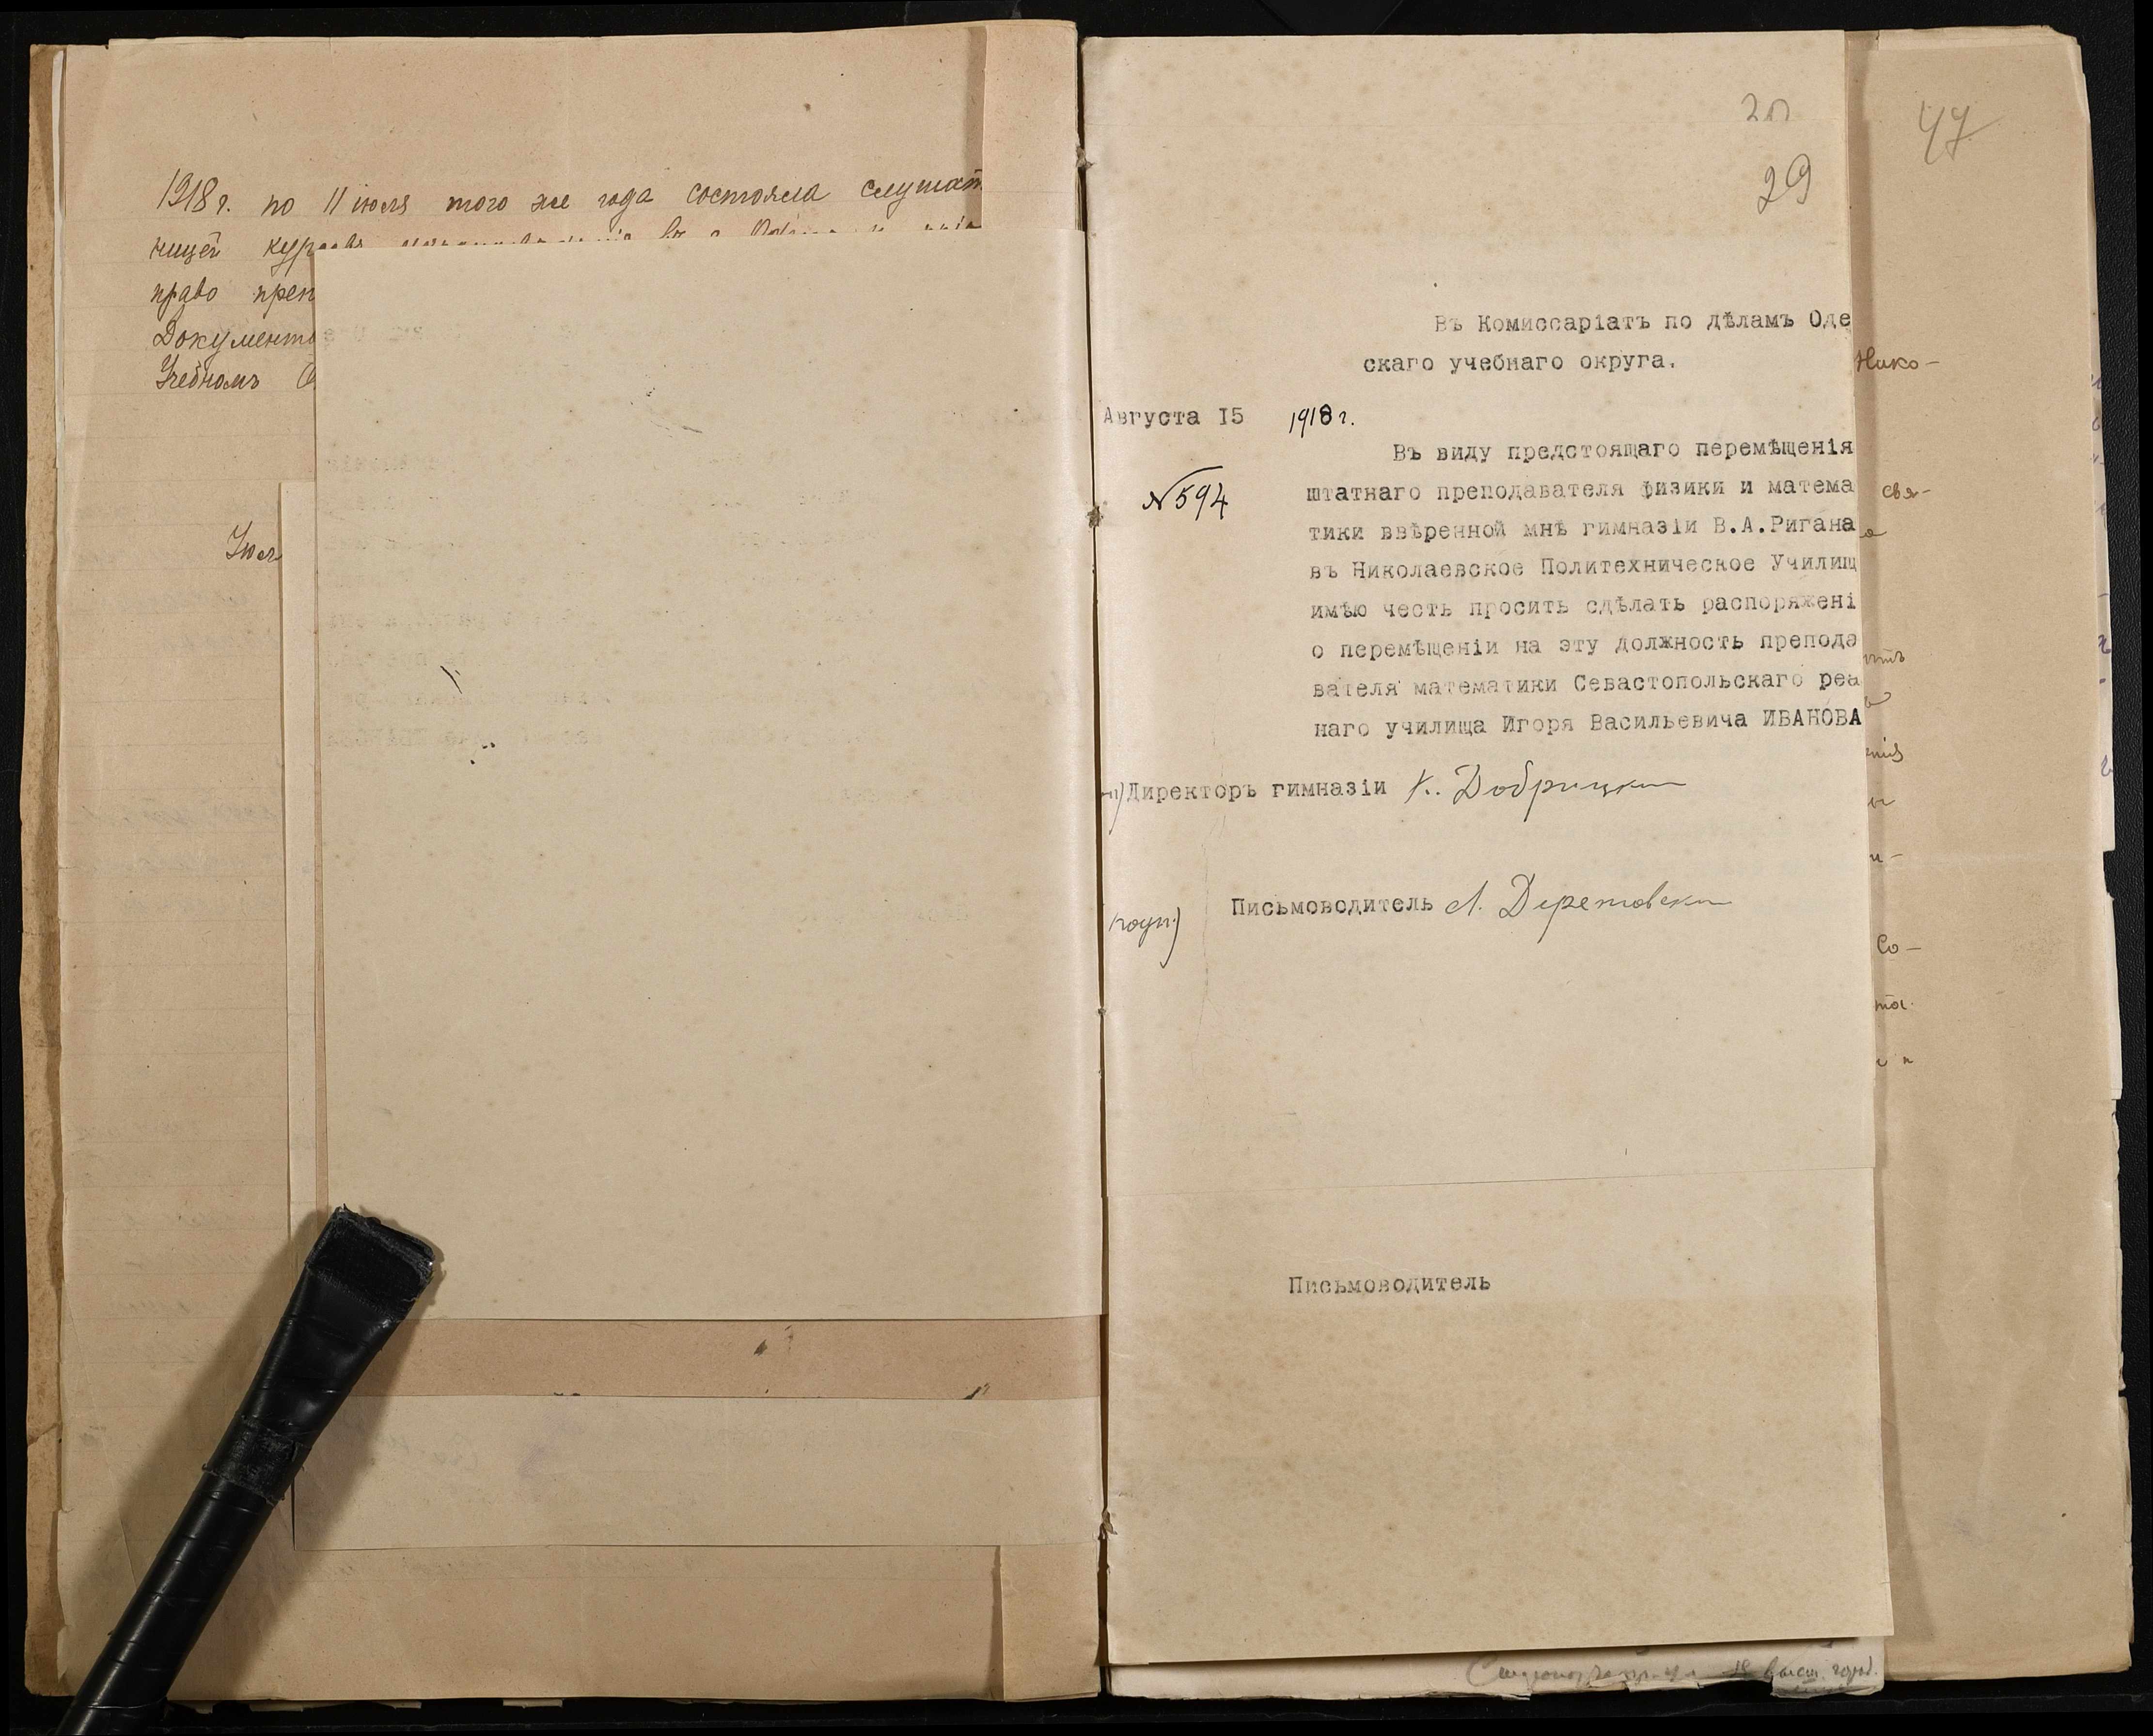 1918 г. по 11 июля того же года состояла слушат
ницей
право преп
Документ
29
47
Въ Комиссаріатъ по дѣламъ Оде
скаго учебнаго округа.
Нико-
Августа I5 1918 г.
Въ виду предстоящаго перемѣщенія
№ 594
штатнаго преподавателя физики и матема
свя-
тики ввѣренной мнѣ гимназіи В.А.Ригана
въ Николаевское Политехническое Училищ
имѣю честь просить сдѣлать распоряжені
о перемѣщеніи на эту должность препода
вателя математики Севастопольскаго реа
наго училища Игоря Васильевича ИВАНОВА
Директоръ гимназіи К. Добрицкий
подп.) Письмоводитель
Со-
Письмоводитель